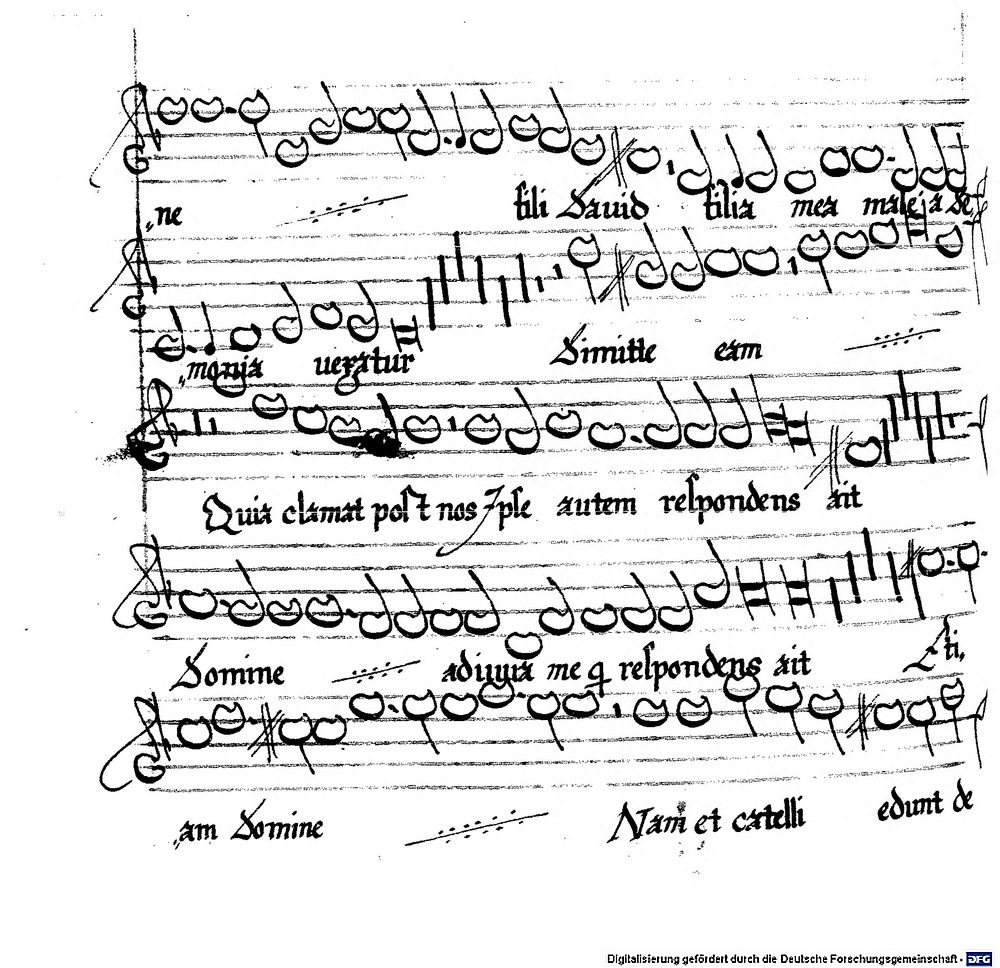 „ne fili David filia mea male a de
„monia vexatur Dimitte eam
Quia clamat post nos Ipse autem respondens ait
Domine adiuva me q respondens ait Eti„
„am Domine Nam et catelli edunt de
Digitalisierung gefördert durch die Deutsche Forschungsgemeinschaft - DFG